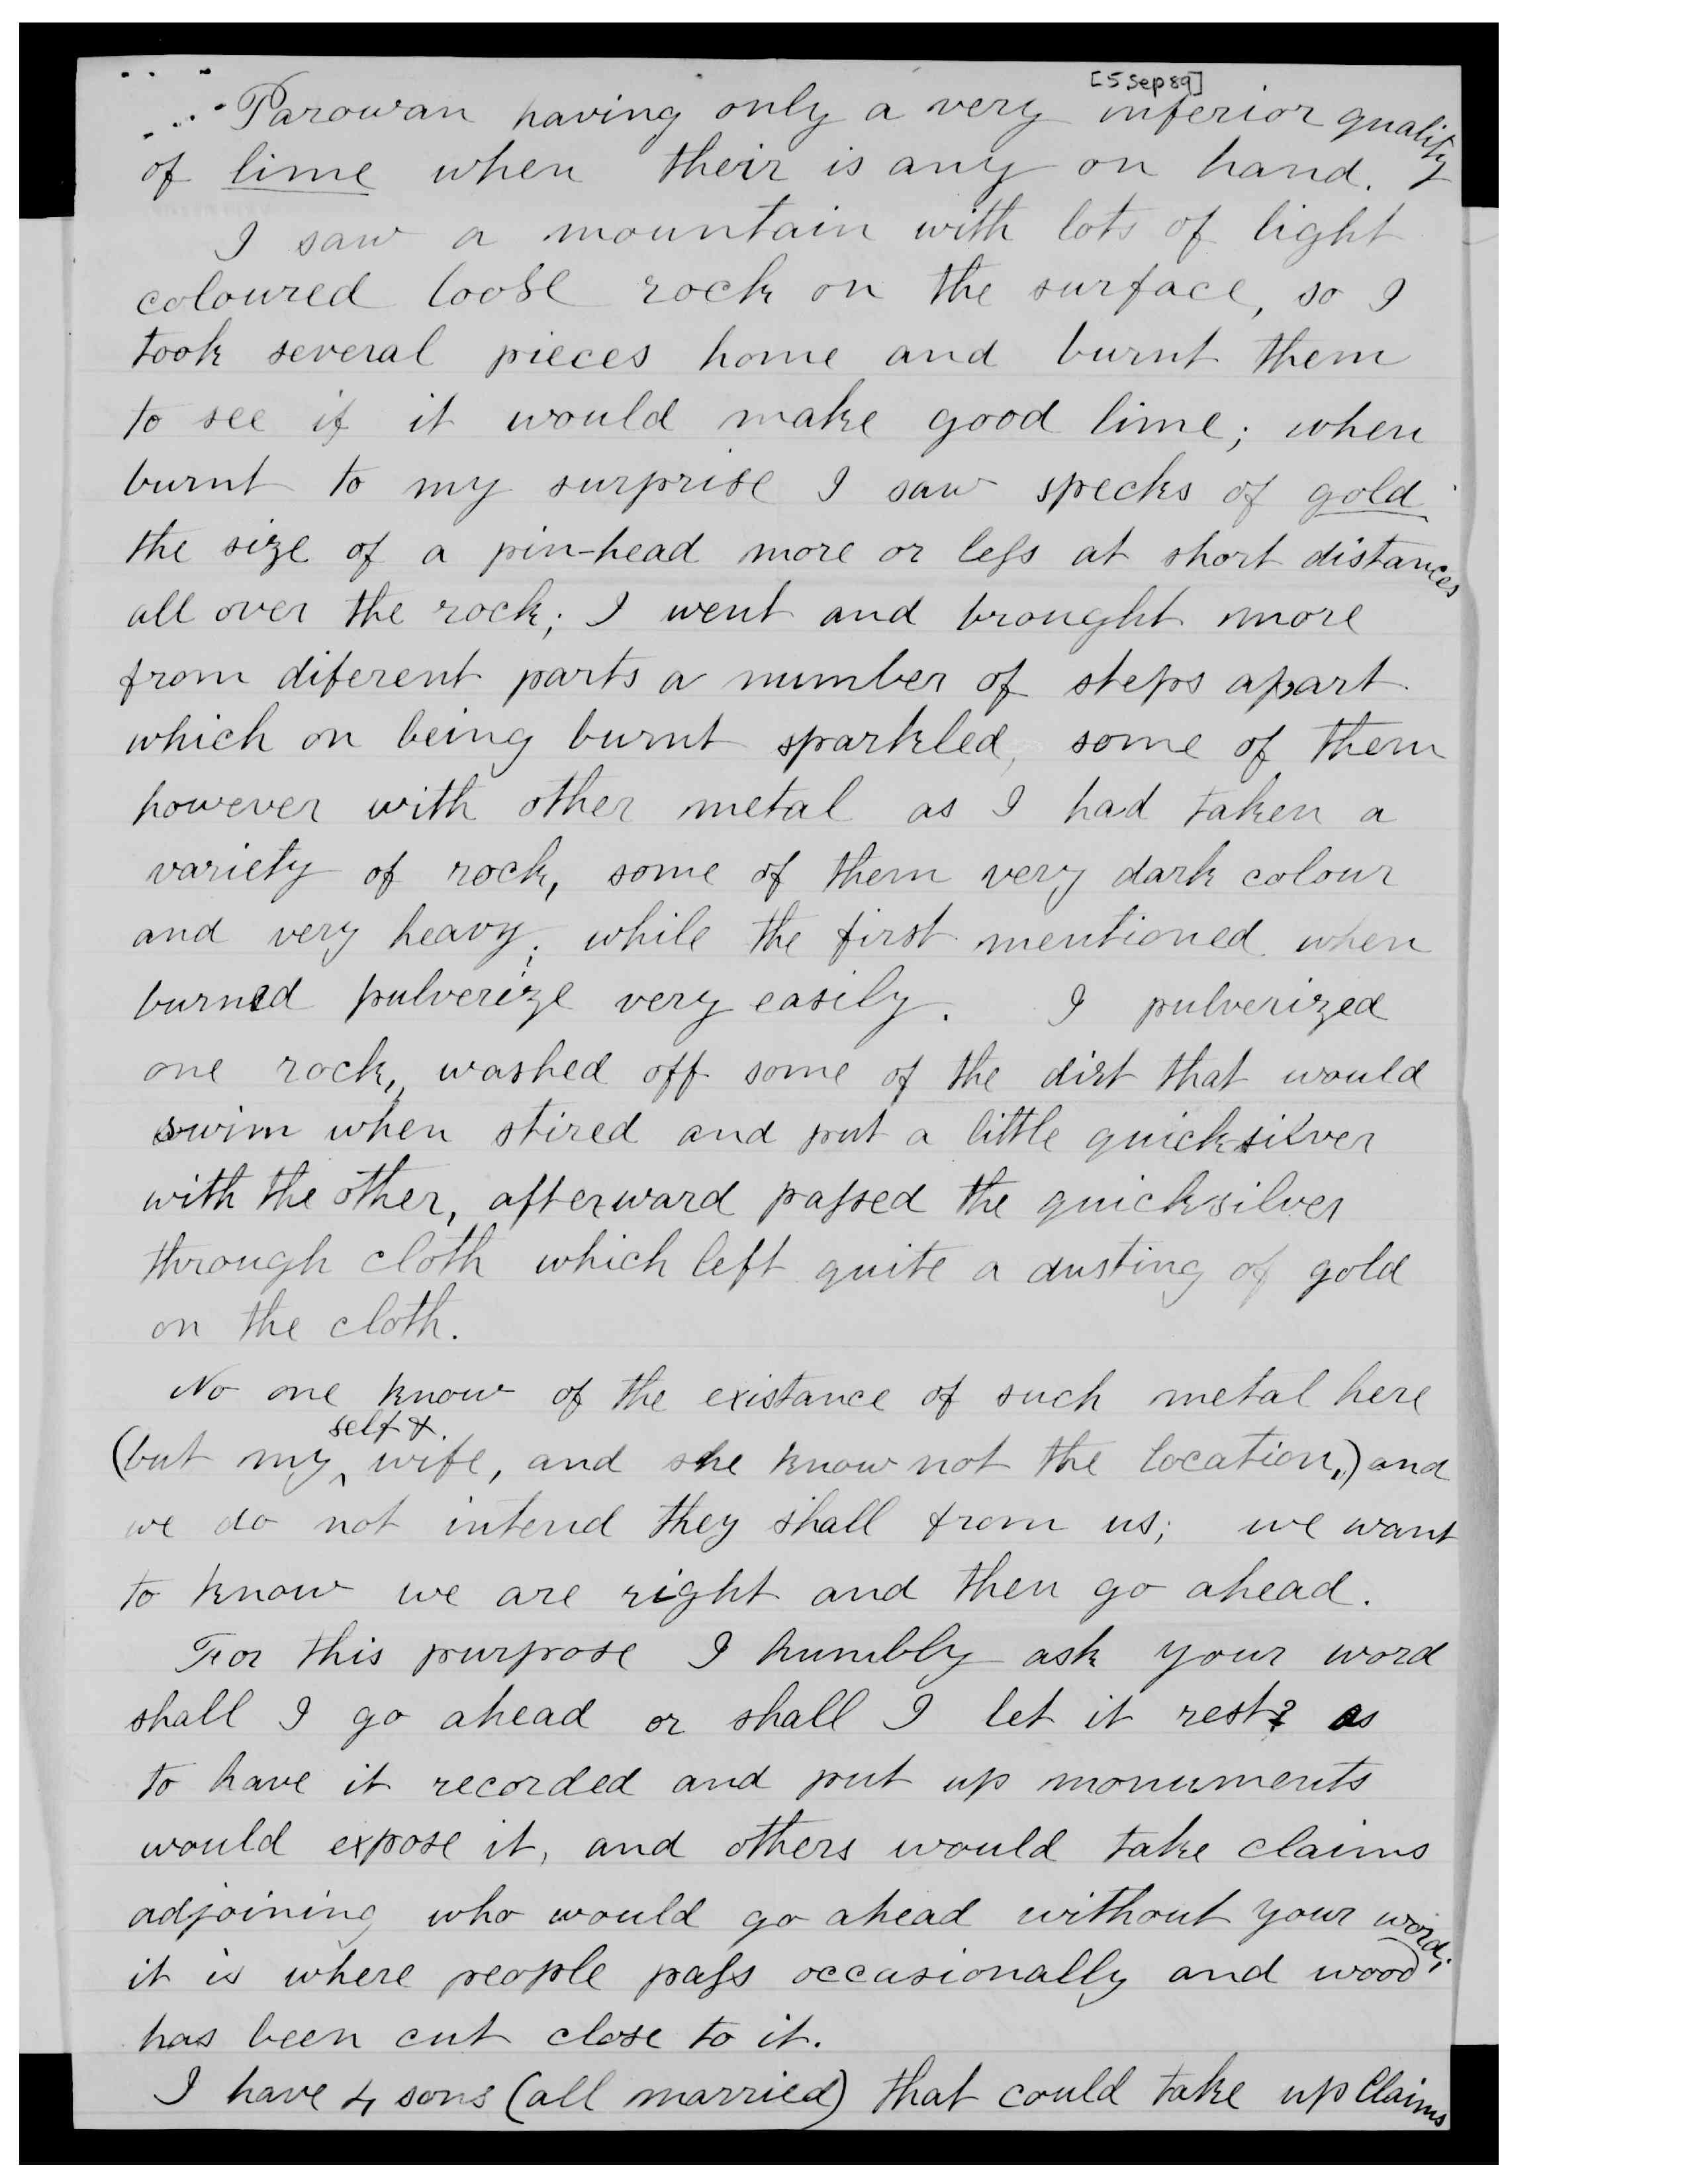 [5 Sep 89]
Parowan having only a very inferior quality
of lime when their is any on hand.
I saw a mountain with lots of light
coloured loose rock on the surface, so I
took several pieces home and burnt them
to see if it would make good lime; when
burnt to my surprise I saw specks of gold
the size of a pin-head more or less at short distances
all over the rock; I went and brought more
from diferent parts a number of steps apart
which on being burnt sparkled, some of them
however with other metal as I had taken a
variety of rock, some of them very dark colour
and very heavy; while the first mentioned when
burned pulverize very easily. I pulverized
one rock, washed off some of the dirt that would
swim when stired and put a little quicksilver
with the other, afterward passed the quicksilver
through cloth which left quite a dusting of gold
on the cloth.
No one know of the existance of such metal here
self &
(but my ^ wife, and she know not the location,) and
we do not intend they shall from us; we want
to know we are right and then go ahead.
For this purpose I humbly ask your word
shall I go ahead or shall I let it rest? as
to have it recorded and put up monuments
would expose it, and others would take claims
adjoining who would go ahead without your word;
it is where people pass occasionally and wood
has been cut close to it.
I have 4 sons (all married) that could take up Claims